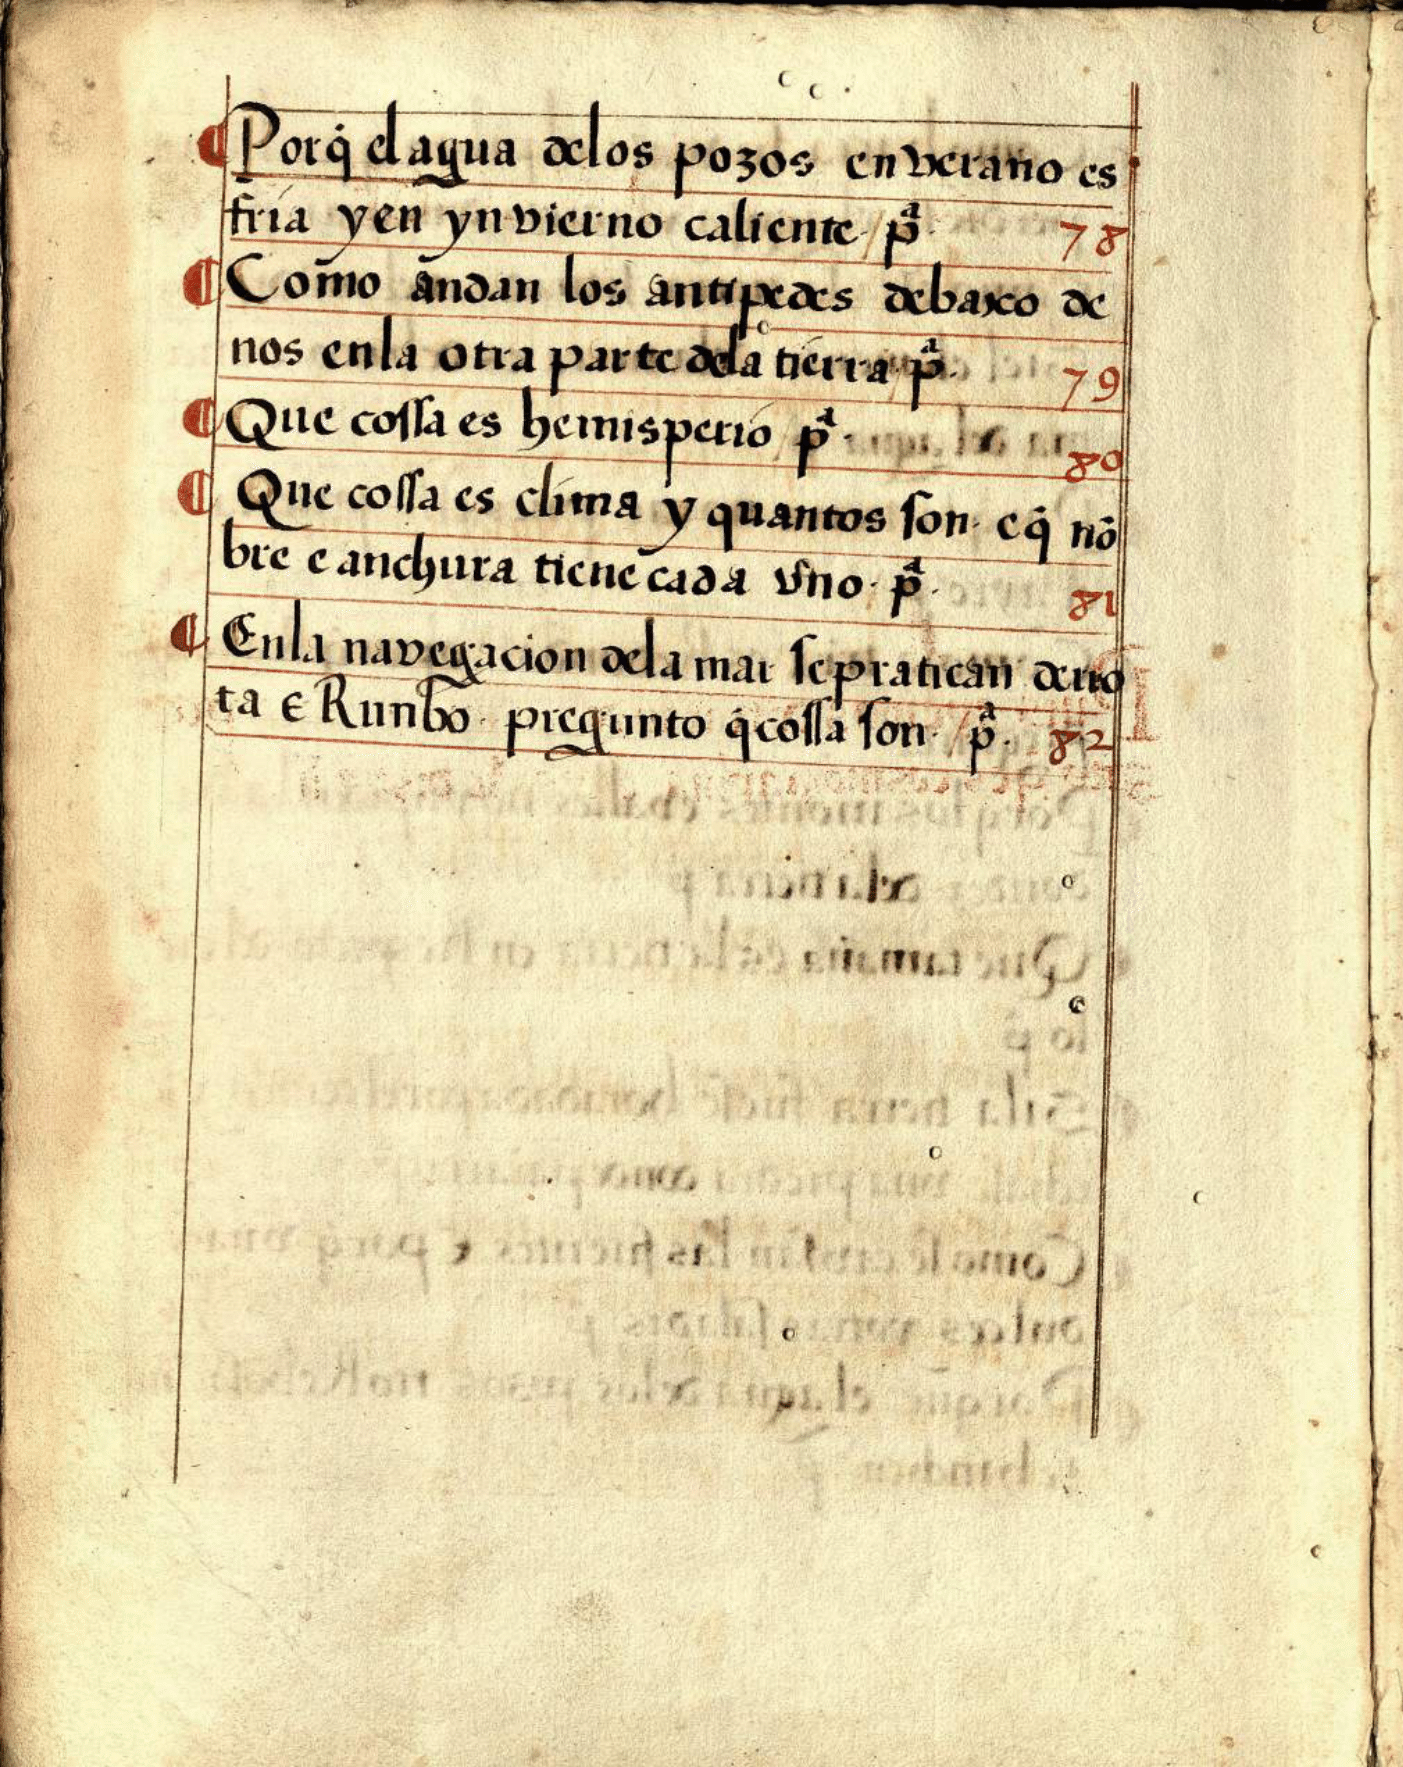 ¶ Porq̇ el agua delos pozos en verano es
fria y en ynvierno caliente · / pª · 78
¶ Como andan los antipodes debaxo de
nos enla otra parte dela tierra / pª · 79
¶ Que cossa es hemisperio pª · 80
¶ Que cossa es clima y quantos son · e q̇ nō
bre e anchura tiene cada vno · pª · 81
¶ Enla navegacion dela mar se pratican derro
ta e Runbo · pregunto q̇ cossa son · / pª · 82